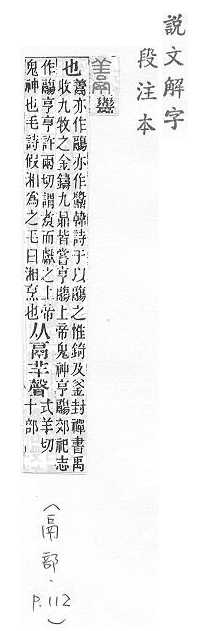 說文解字
段注本
也
亦作鬺亦作韓詩于以鬺之惟錡及釜封禪書禹
收九牧之金鑄九鼎皆嘗亨鬺上帝鬼神亨鬺郊祀志
作鬺亨亨許兩切謂煮而獻之上帝
鬼神也毛詩假湘為之毛曰湘烹也
从鬲羊聲
式羊切
十部
(鬲部．
P.112)